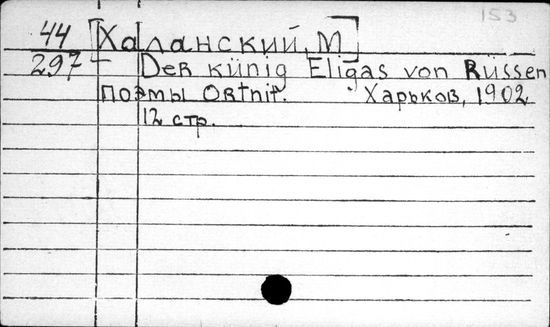 153
44 [Халанский, М]
297 – Der künig Eligas von Rüssen
поэмы Ortnit. Харьков, 1902
12 стр.